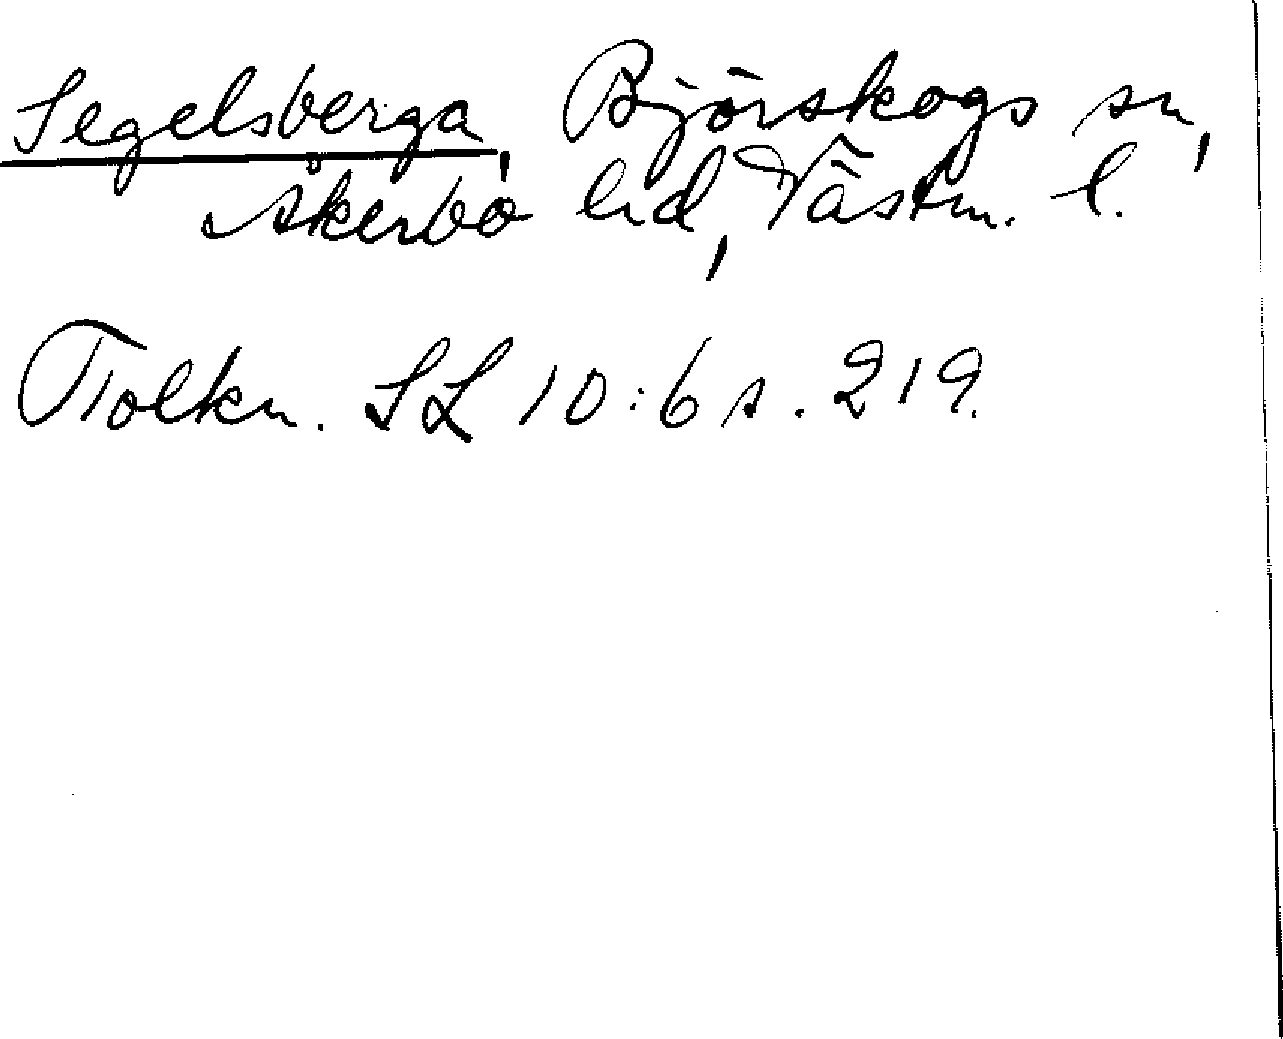 Segelsberga, Björskogs sn,
Åkerbo hd, Västm. l.
Tolkn. SL 10:6 s. 219.